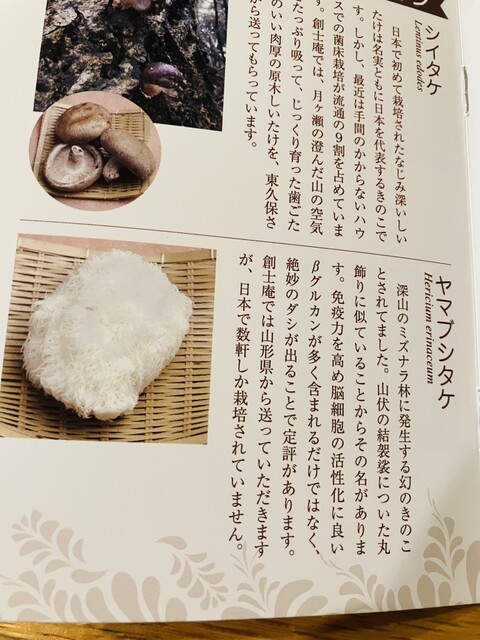 シイタケ
Lentinus edodes
日本で初めて栽培されたなじみ深いしい
たけは名実ともに日本を代表するきのこで
す。しかし、最近は手間のかからないハウ
スでの菌床栽培が流通の9割を占めていま
す。創士庵では、月ヶ瀬の澄んだ山の空気
たっぷり吸って、じっくり育った歯ごた
のいい肉厚の原木しいたけを、東久保さ
から送ってもらっています。
ヤマブシタケ
Hericium erinaceum
深山のミズナラ林に発生する幻のきのこ
とされてました。山伏の結袈裟についた丸
飾りに似ていることからその名がありま
す。免疫力を高め脳細胞の活性化に良い
βグルカンが多く含まれるだけではなく、
絶妙のダシが出ることで定評があります。
創士庵では山形県から送っていただきます
が、日本で数軒しか栽培されていません。